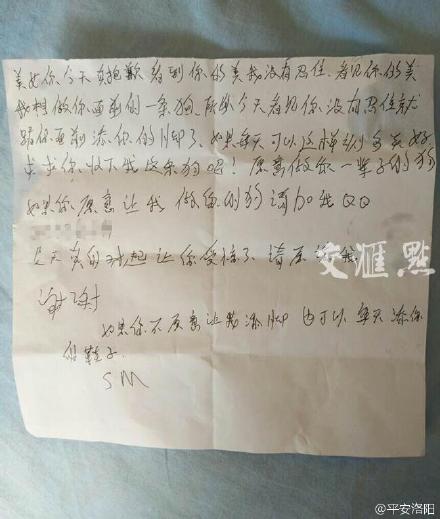 美女你今天真抱歉看到你的美我没有忍住、看见你的美
我想做你面前的一条狗所以今天看见你没有忍住就
跪你面前添你的脚了、如果每天可以这样该多美好
求求你收下我这条狗吧!愿意做你一辈子的狗
如果你愿意让我做你的狗请加我QQ
今天真的对起让你受惊了请原谅我
谢谢
如果你不愿意让我添脚也可以每天添你
的鞋子.
SM
文匯點
@平安洛阳